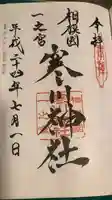 奉拝
相模國
一之宮
寒川神社
平成二十四年七月一日